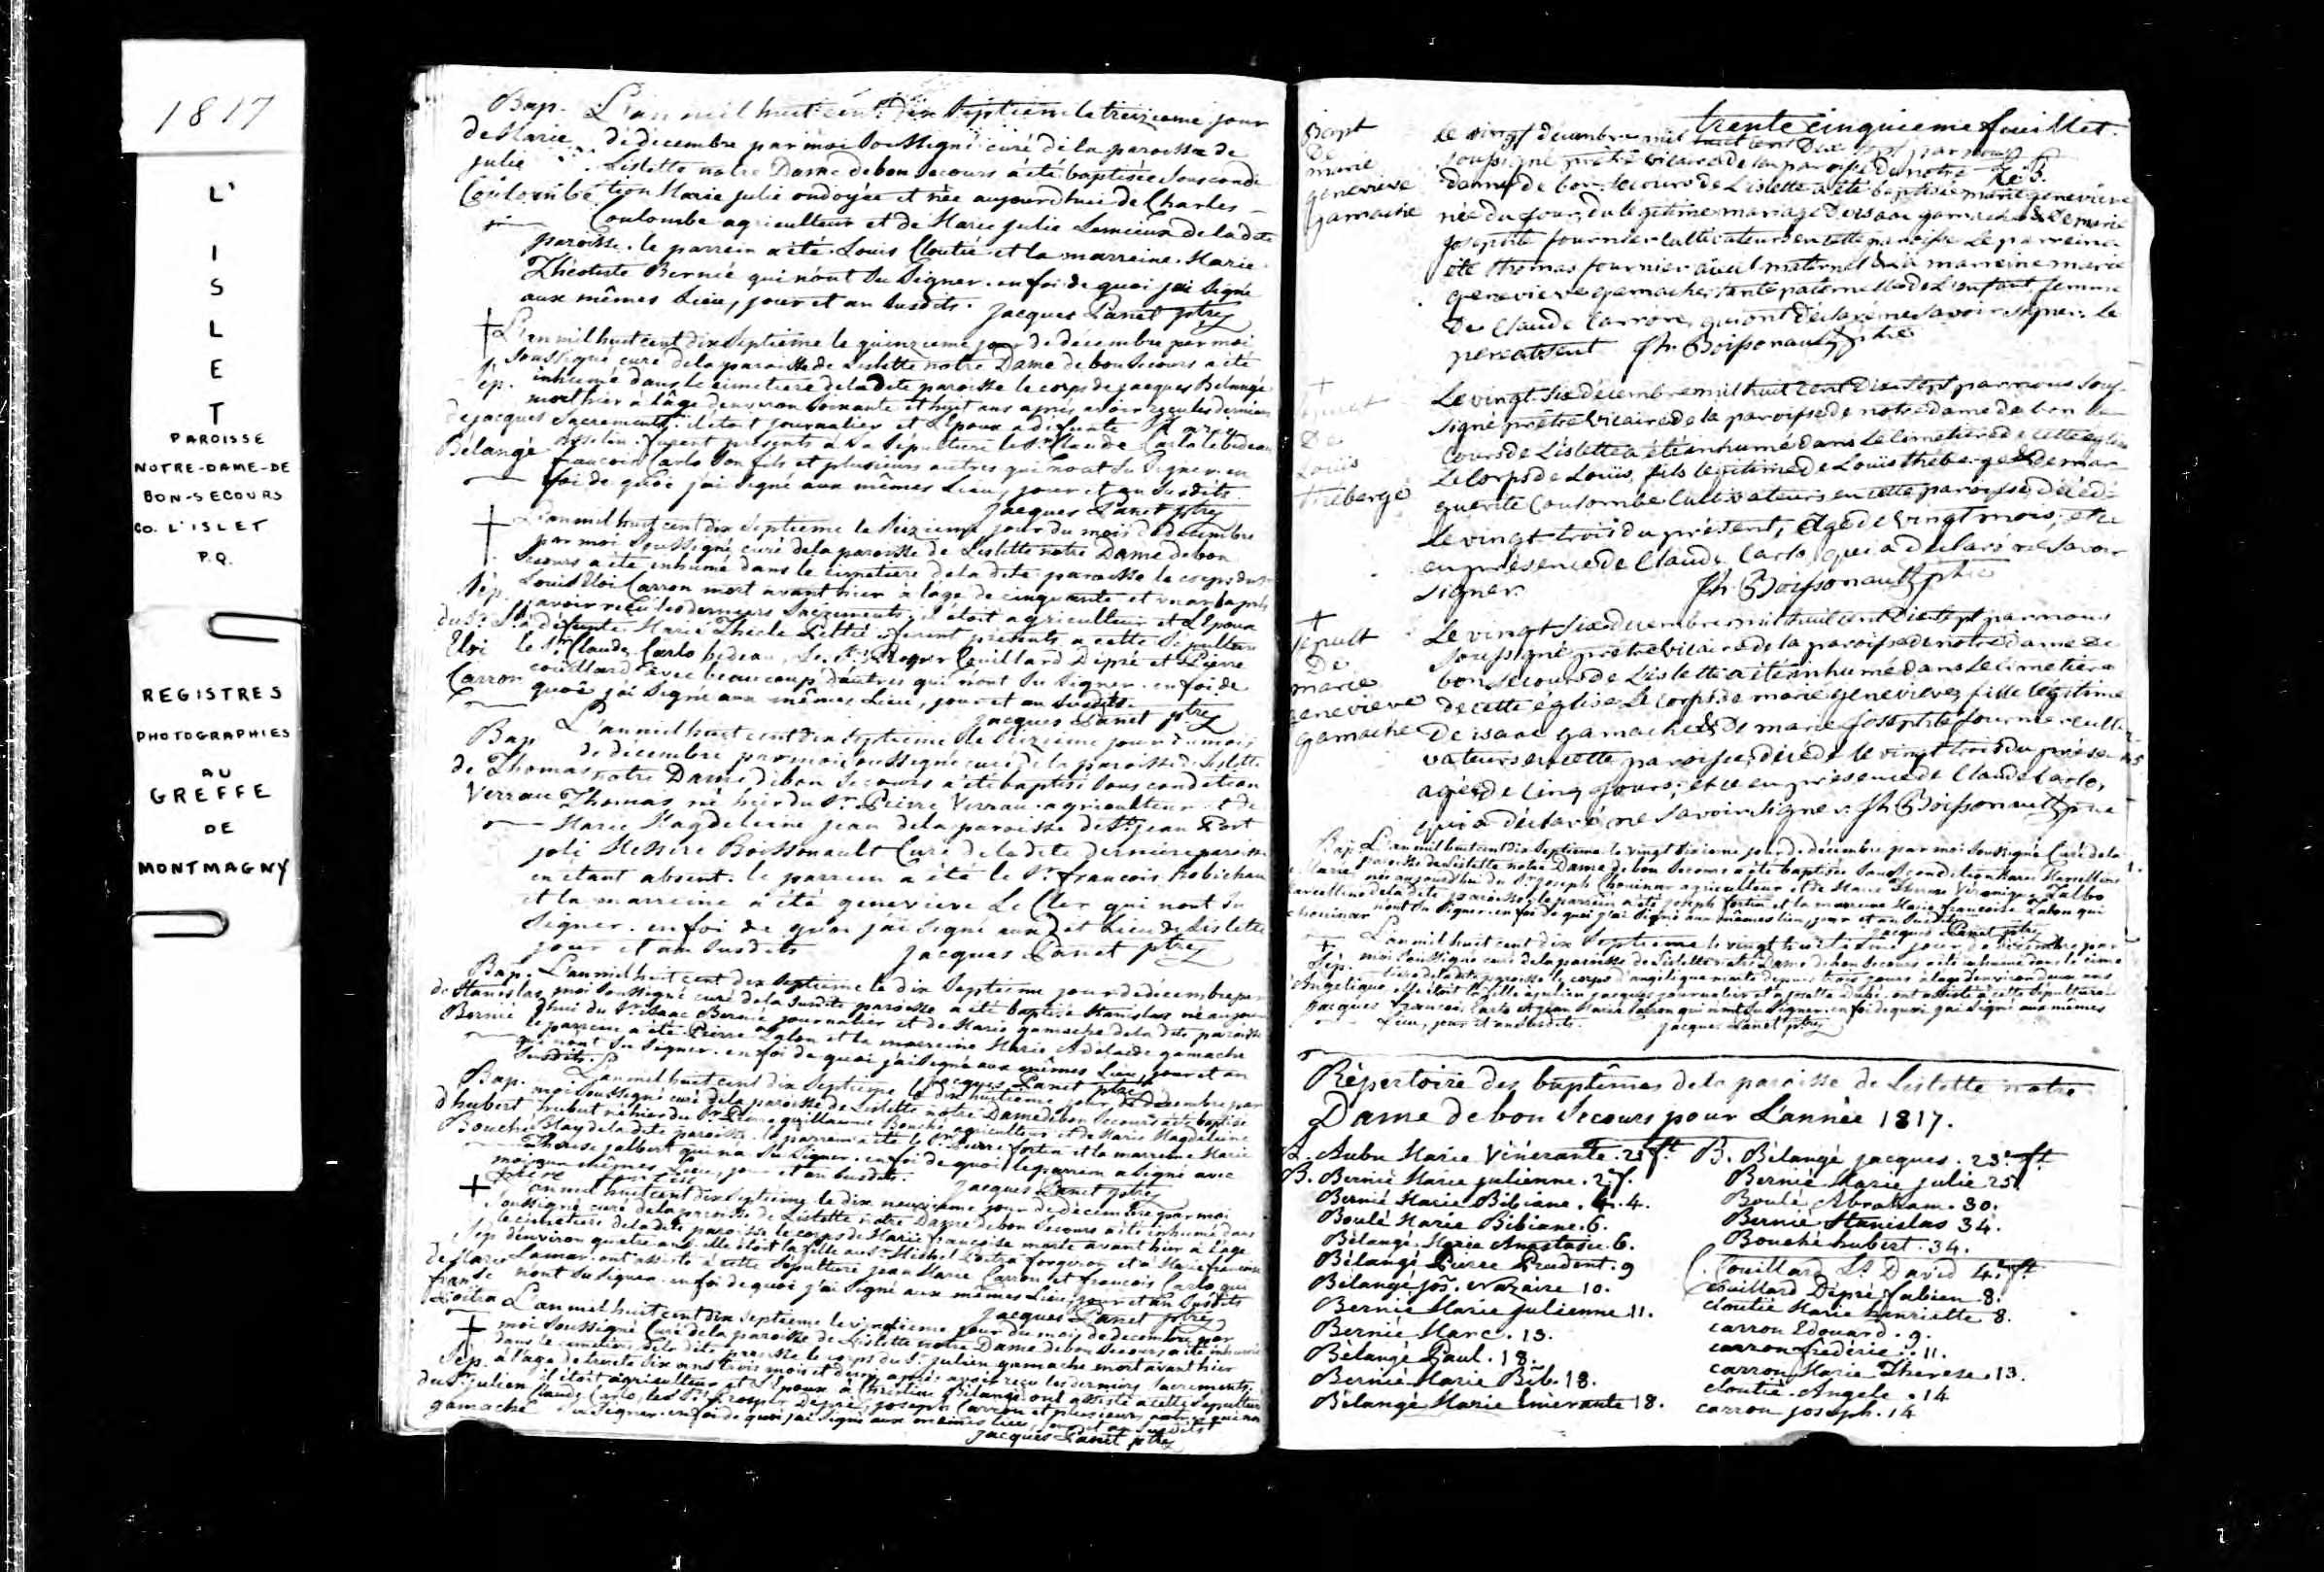 1817
L'
I
S
L
E
T
PAROISSE
NOTRE-DAME-DE
BON-SECOURS
CO. L'ISLET
P.Q.
REGISTRES
PHOTOGRAPHIES
AU
GREFFE
DE
MONTMAGNY
Bap. L'an mil huit cent dix Septieme le treizieme jour
de Marie de decembre par moi Soussigné curé de la paroisse de
julie Lislette notre Dame de bon Secours a été baptisée Sous condi
Coulombe tion Marie julie ondoyée et née aujourdhui de Charles
Coulombe agriculteur et de Marie julie Lemieux de la dite
paroisse. le parrein a été Louis Cloutié et la marreine Marie
Théotiste Bernié qui n'ont Su Signer. en foi de quoi j'ai Signé
aux mêmes Lieu, jour et an Susdits. jacques Panet ptre
† L'an mil huit cent dix Septieme le quinzieme jour de décembre par moi
Soussigné curé de la paroisse de Lislette notre Dame de bon Secours a été
Sép. inhumé dans le cimetiere de la dite paroisse le corps de jacques Belangé
mort hier à l'âge d'environ Soixante et huit ans après avoir reçu les derniers
de jacques Sacrements. il étoit journalier et Epoux a défunte
Bélangé furent présents à Sa Sépulture le Sr. Claude Carlo le bedeau
francois Carlo Son fils et plusieurs autres qui n'ont Su Signer. en
foi de quoi j'ai Signé aux mêmes Lieu, jour et an Susdits.
jacques Panet ptre
† L'an mil huit cent dix Septieme le Seizieme jour du mois de decembre
par moi Soussigné curé de la paroisse de Lislette notre Dame de bon
Secours a été inhumé dans le cimetiere de la dite paroisse le corps du Sr.
Sép. Louis Eloi Carron mort avant hier à l'age de cinquante et un ans après
avoir reçu les derniers Sacrements. il étoit agriculteur et Epoux
du Sr. à defunte Marie Thecle furent présents a cette Sépulture
Eloi le Sr. Claude Carlo bedeau, le Sr. Couillard Dépré et Pierre
Carron couillard avec beaucoup d'autres qui n'ont Su Signer. en foi de
quoi j'ai Signé aux mêmes Lieu, jour et an Susdits.
jacques Panet ptre
Bap L'an mil huit cent dix Septieme le Seizieme jour du mois
de decembre par moi Soussigné curé de la paroisse de Lislette
de Thomas notre Dame de bon Secours a été baptisé Sous condition
Verrau Thomas né hier du Sr. Pierre Verrau agriculteur et de
Marie Magdeleine jean de la paroisse de St. jean Port
joli Messire Boissonault Curé de la dite dernière paroisse
en étant absent. le parrein a été le Sr. francois Robichau
et la marreine a été genevieve Le Cler qui n'ont Su
Signer. en foi de quoi j'ai Signé aux dit Lieu de Lislette
jour et an Susdits jacques Panet ptre
Bap. L'an mil huit cent dix Septieme le dix Septieme jour de décembre par
de Stanislas moi Soussigné curé de la Susdite paroisse a été baptisé Stanislas né aujour
Bernié d'hui du Sr. isaac Bernié journalier et de Marie gamache de la dite paroisse
le parrein a été Pierre Lalon et la marreine Marie Adelaide gamache
qui n'ont Su Signer. en foi de quoi j'ai Signé aux mêmes Lieu, jour et an
Susdits. jacques Panet ptre
Bap. L'an mil huit cent dix Septieme le dix huitieme jour de décembre par
moi Soussigné curé de la paroisse de Lislette notre Dame de bon Secours a été baptisé
d'hubert hubert né hier du Sr. guillaume Bouché agriculteur et de Marie Magdeleine
Bouché de la dite paroisse. le parrein a été le Sr. Pierre fortin et la marreine Marie
Therese jalbert qui n'a Su Signer. en foi de quoi le parrein a Signé avec
moi aux mêmes Lieu, jour et an Susdits.
jacques Panet ptre
† L'an mil huit cent dix Septieme le dix neuvieme jour de décembre par moi
Soussigné curé de la paroisse de Lislette notre Dame de bon Secours a été inhumé dans
le cimetiere de la dite paroisse le corps de Marie francoise morte avant hier à l'age
Sép. d'environ quatre ans. elle étoit la fille au Sr. Michel forgeron et à Marie francoise
de Marie ont assisté à cette Sépulture jean Marie Carron et francois Carlo qui
franse n'ont Su Signer. en foi de quoi j'ai Signé aux mêmes Lieu, jour et an Susdits
jacques Panet ptre
L'an mil huit cent dix Septieme le vingtieme jour du mois de decembre par
† moi Soussigné Curé de la paroisse de Lislette notre Dame de bon Secours a été inhumé
dans le cimetiere de la dite paroisse le corps du Sr. julien gamache mort avant hier
Sép. à l'age de trente Six ans trois mois et demi après avoir reçu les derniers Sacrements.
du Sr. julien il étoit agriculteur et Epoux à Christine Bélangé. ont assisté à cette Sépulture
gamache Claude Carlo, les Srs. Prosper Dépré, joseph Carron et plusieurs autres qui n'ont
Su Signer. en foi de quoi j'ai Signé aux mêmes Lieu, jour et an Susdits
jacques Panet ptre
trente cinquieme feuillet.
Bapt Le vingt décembre mil huit cent Dix sept par nous
De soussigné prêtre vicaire de la paroisse de notre
marie dame de bon Secours de Lislette a été baptisée marie genevieve
genevieve née du jour, du légitime mariage De isaac gamache & De marie
gamache josephte fournier cultivateurs en cette paroisse. Le parrein a
été thomas fournier aïeul maternel & la marreine marie
genevieve gamache, tante paternelle de L'enfant, femme
De Claude Carron, qui ont déclaré ne savoir signer. le
pere absent Fh. Boissonault ptre
† Le vingt Six décembre mil huit cent Dix Sept par nous Sous-
De signé prêtre Vicaire de la paroisse de notre dame de bon Se-
Louis cours de Lislette a été inhumé dans Le Cimetiere de cette église
théberge Le Corps de Louis, fils légitime de Louis théberge & De mar-
guerite Coulombe Cultivateurs en cette paroisse, décédé
Le vingt trois du présent, âgé de vingt mois, et ce
en présence de Claude Carlo, qui a déclaré ne Savoir
signer. Fh. Boissonault ptre
† Le vingt Six décembre mil huit cent Dix Sept par nous
sépult Soussigné prêtre Vicaire de la paroisse de notre dame de
De bon Secours de Lislette a été inhumé dans Le Cimetiere
marie de cette église Le Corps de marie genevieve, fille légitime
genevieve De isaac gamache & De marie josephte fournier culti-
gamache vateurs en cette paroisse, décédé le vingt trois du présent
agée de Cinq jours, et ce en présence de Claude Carlo,
qui a déclaré ne Savoir Signer. Fh. Boissonault ptre
Bap. L'an mil huit cent dix Septieme le vingt Sixieme jour de décembre par moi Soussigné Curé de la
Marie paroisse de Lislette notre Dame de bon Secours a été baptisée Sous condition Marie Marcelline
née aujourdhui du Sr. joseph Chouinar agriculteur et de Marie Therese Véronique Talbo
Marcelline de la dite paroisse. le parrein a été joseph fortin et la marreine Marie francoise qui
chouinar n'ont Su Signer. en foi de quoi j'ai Signé aux mêmes lieu, jour et an Susdits
jacques Panet ptre
† L'an mil huit cent dix Septieme le vingt huitieme jour de décembre par
Sép. moi Soussigné curé de la paroisse de Lislette notre Dame de bon Secours a été inhumé dans le cime
tiere de la dite paroisse le corps d'angelique morte depuis trois jours à l'age d'environ deux ans
Angelique elle étoit la fille à julien jacques journalier et a josette Dubé. ont assisté à cette Sépulture
jacques francois Carlo et jean Marie Carron qui n'ont Su Signer. en foi de quoi j'ai Signé aux mêmes
Lieu, jour et an Susdits. jacques Panet ptre
Répertoire des baptêmes de la paroisse de Lislette notre
Dame de bon Secours pour L'année 1817.
A. Aubu Marie Vénérante. 21 ft. B. Bélangé jacques. 23e ft
B. Bernié Marie julienne. 2e f. Bernié Marie julie 25.
Bernié Marie Bibiane. 4. Boulé Abraham. 30.
Boulé Marie Bibiane. 6. Bernié Stanislas 34.
Bélangé Marie Anastasie. 6. Bouché hubert. 34.
Bélangé Pierre Prudent. 9 C. Couillard Ls. David 4e ft
Bélangé jos. Nazaire 10. Couillard Dépré fabien 8.
Bernié Marie julienne 11. cloutié Marie henriette 8.
Bernié Marc. 13. carron Edouard. 9.
Bélangé Paul. 18. carron frédéric. 11.
Bernié Marie Bib. 18. carron Marie Therese. 13.
Bélangé Marie Emérante 18. cloutié Angele. 14
carron joseph. 14